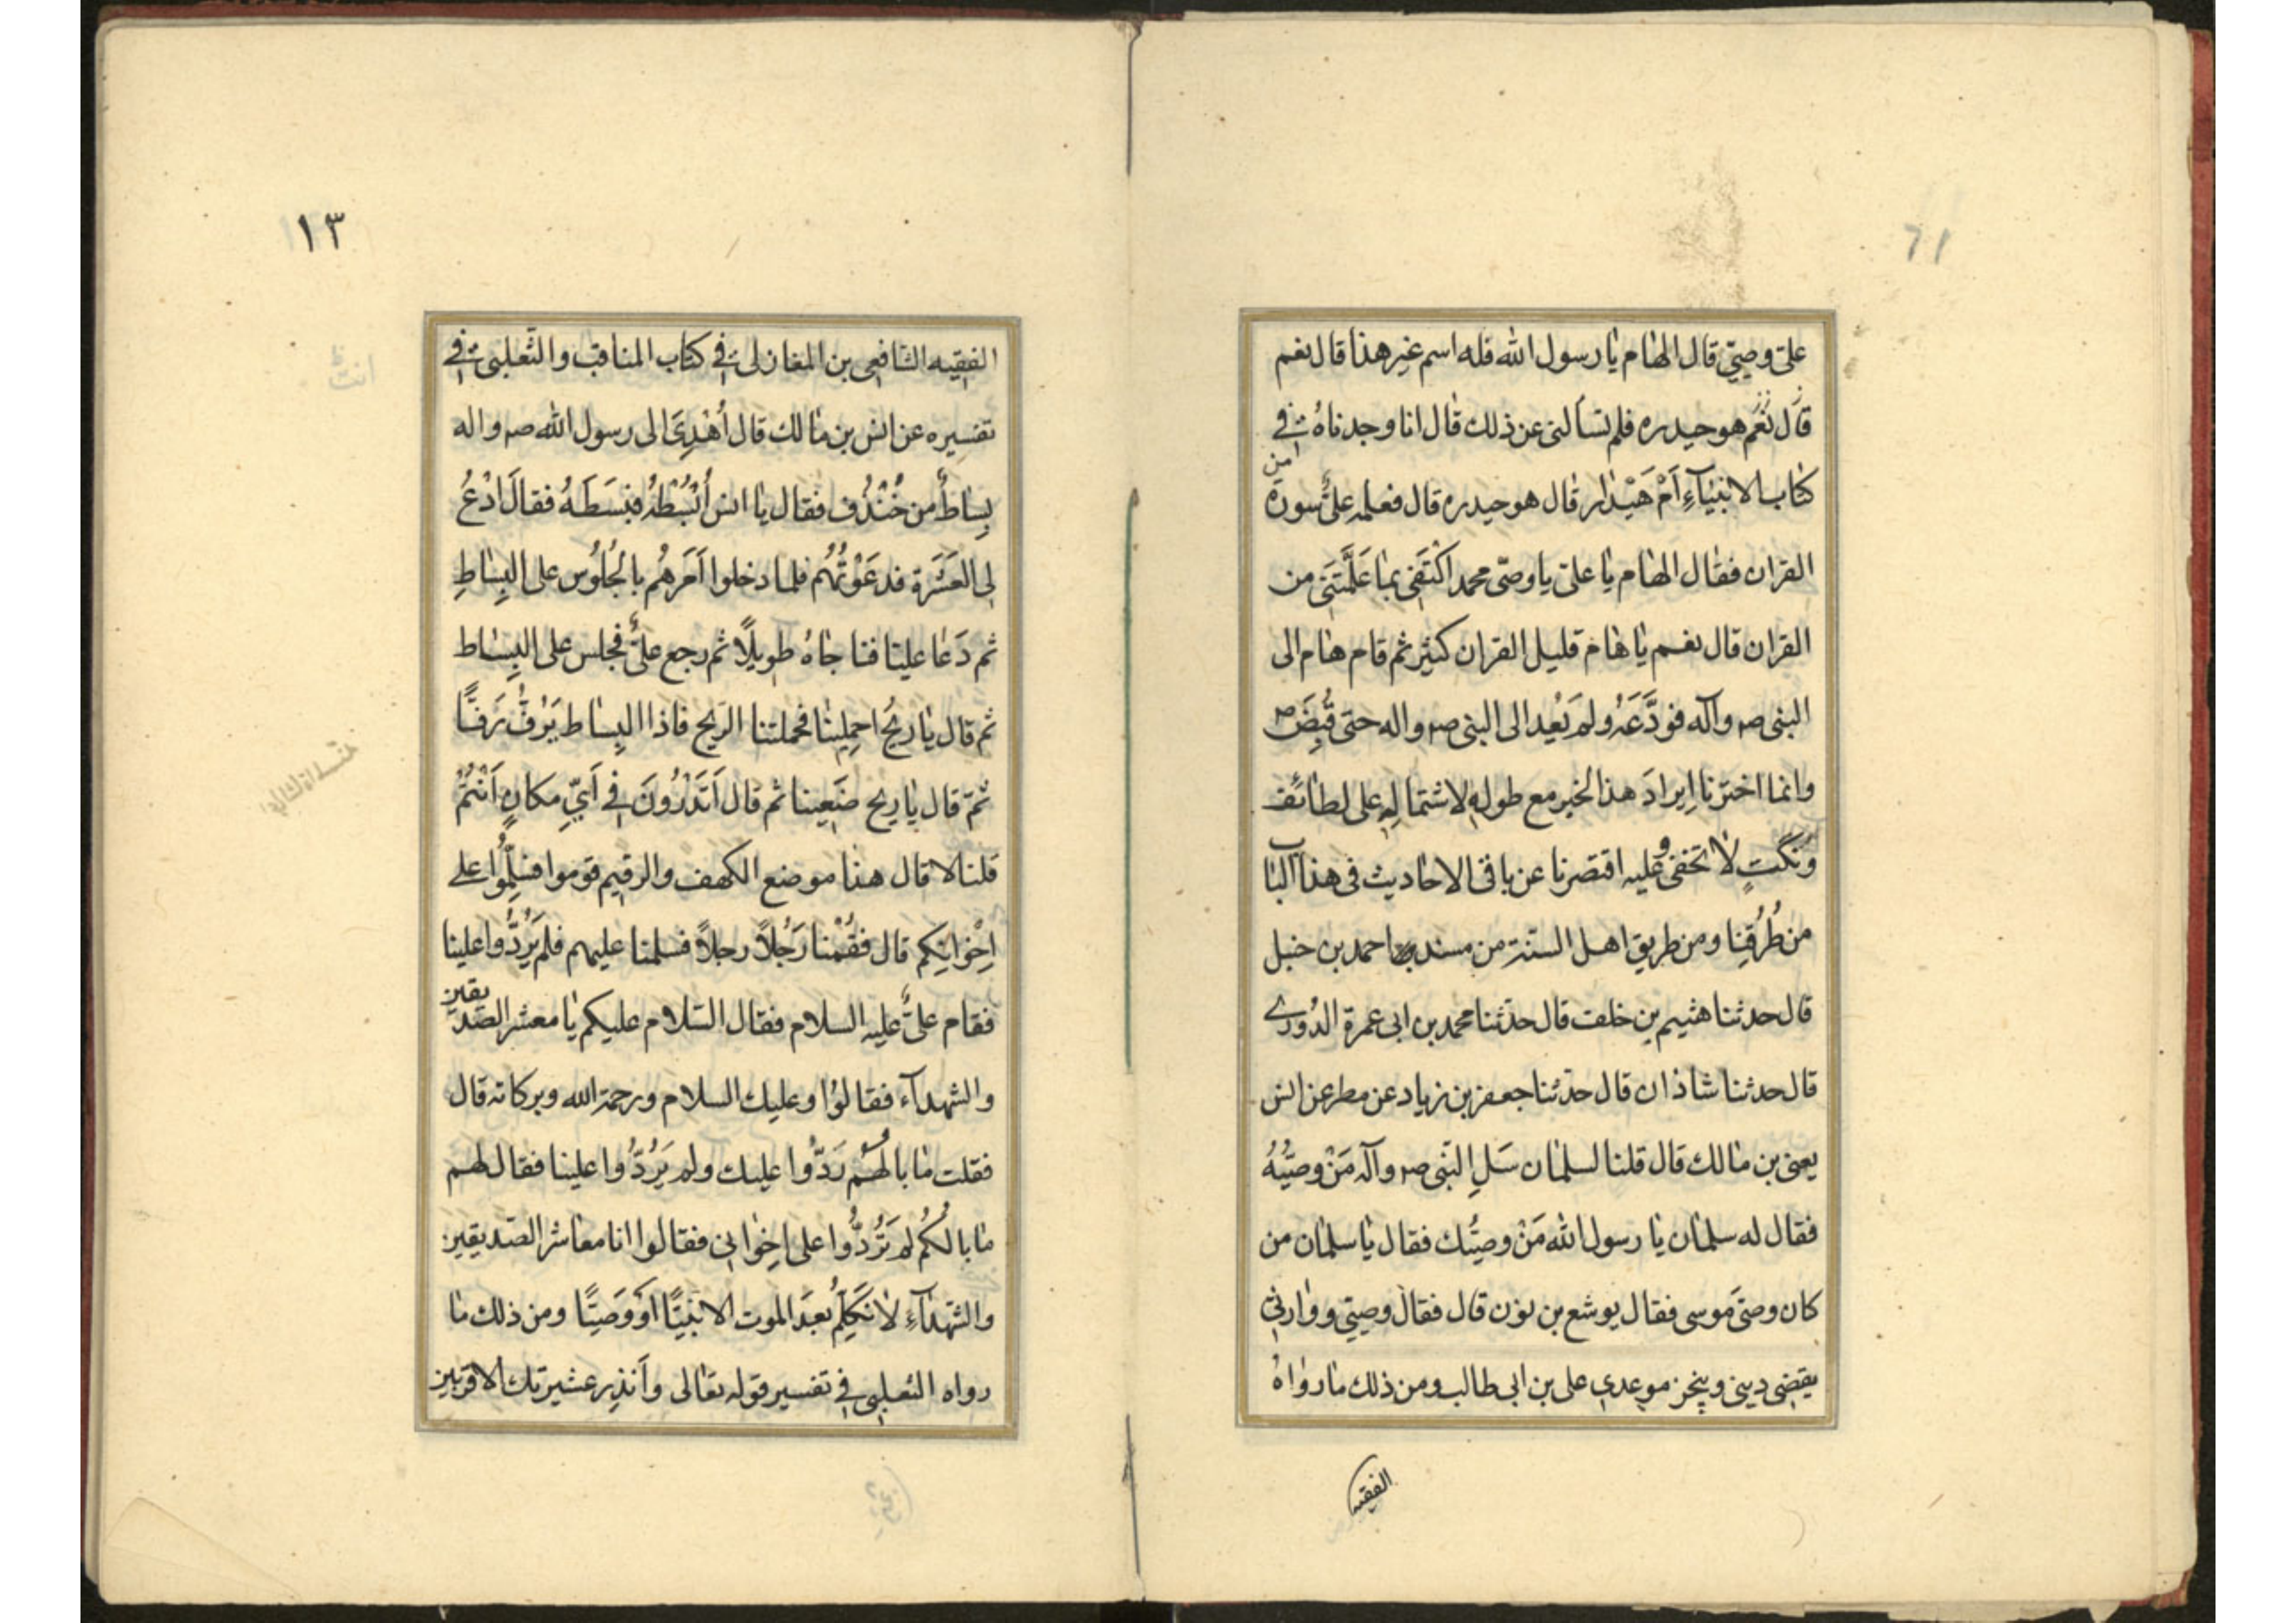 علی وصیتی قال الهام یا رسول الله فله اسم غیر هذا قال نعم
قال نَعَم هو حیدره فلم تسألنی عن ذلک قال انا وجدناهُ فی
کتاب الانبیآءِ اَمْ هَیْدار قال هو حیدره قال فعلمه علیٌّ سورة من
القران فقال الهام یا علی یا وصی محمد اکْتَفی بما عَلَّمتَنی من
القران قال نعم یا هام قلیل القران کثیر ثم قام هام الی
النبی صه وآله فودَّعَهُ ولم یَعُد الی النبی صه واله حتی قُبِضَ ص
وانما اخترنا اِیرادَ هذا الخبر مع طولِهِ لاشتمالِهِ علی لطائف
وَنُکَتٍ لا تخفی وعلیه اقتصرنا عن باقی الاحادیث فی هذا الباب
من طُرُقِنا ومن طریق اهل السنة من مسند احمد بن حنبل
قال حدثنا هثیم بن خلف قال حدثنا محمد بن ابی عمرة الدُوری
قال حدثنا شاذان قال حدثنا جعفر بن زیاد عن مطر عن انس
یعنی بن مالک قال قلنا لسلمان سَلِ النبی صه وآله مَنْ وصیُّهُ
فقال له سلمان یا رسول الله مَنْ وصیُّک فقال یا سلمان من
کان وصیَ موسی فقال یوشع بن نون قال فقال وصیتی ووارثی
یقضی دینی وینجز موعدی علی بن ابی طالب ومن ذلک ما رواهُ
الفقیه
١٣
الفقیه الشافعی بن المغازلی فی کتاب المناقب والثعلبی فی
تفسیره عن انس بن مالک قال أُهْدِیَ الی رسول الله صه واله
بِساطٌ من خُنْدُف فقال یا انس اُبْسُطْهُ فبَسَطَهُ فقالَ ادْعُ
لی العَشَرة فدعَوْتُهُم فلما دخلوا اَمَرهُم بالجُلُوس علی البِساطِ
ثم دَعا علیا فناجاهُ طویلًا ثم رجع علیٌّ فجلس علی البِساط
ثم قال یا ریحُ احمِلِینا فحملتنا الریح فاذا البِساط یَزِفُّ زَفًّا
ثمّ قال یا ریح ضَعِینا ثم قال اَتَدْرُونَ فی اَیِّ مکانٍ اَنْتُمْ
قلنا لا قال هذا موضع الکهف والرقیم قوموا فسَلِّمُوا علی
اِخْوانِکم قال فقُمْنا رَجُلاً رجلاً فسلمنا علیهم فلم یَرُدُّوا علینا
فقام علیٌّ علیه السلام فقال السّلام علیکم یا معشر الصدیقین
والشهدآء فقالوُا وعلیک السلام ورحمة الله وبرکاته قال
فقلت ما بالُهُمْ رَدُّوا علیک ولم یَرُدُّوا علینا فقال لهم
ما بالُکُم لم تَرُدُّوا علی اِخْوانی فقالوا انا معاشر الصّدیقین
والشّهدآءِ لا نُکَلِّمُ بعدَ الموت الا نَبِیًّا اَوْ وَصِیًّا ومن ذلک ما
رواه الثعلبی فی تفسیر قوله تعالی وأَنذِر عشیرتک الاقربین